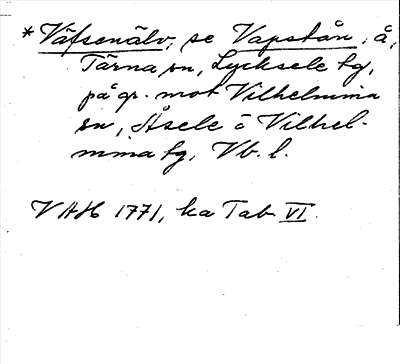 *Väfsenälv, se Vapstån, å,
Tärna sn, Lycksele tg,
på gr. mot Vilhelmina
sn, Åsele o Vilhel-
mina tg, Vb. l.
VAH 1771, ka Tab VI.